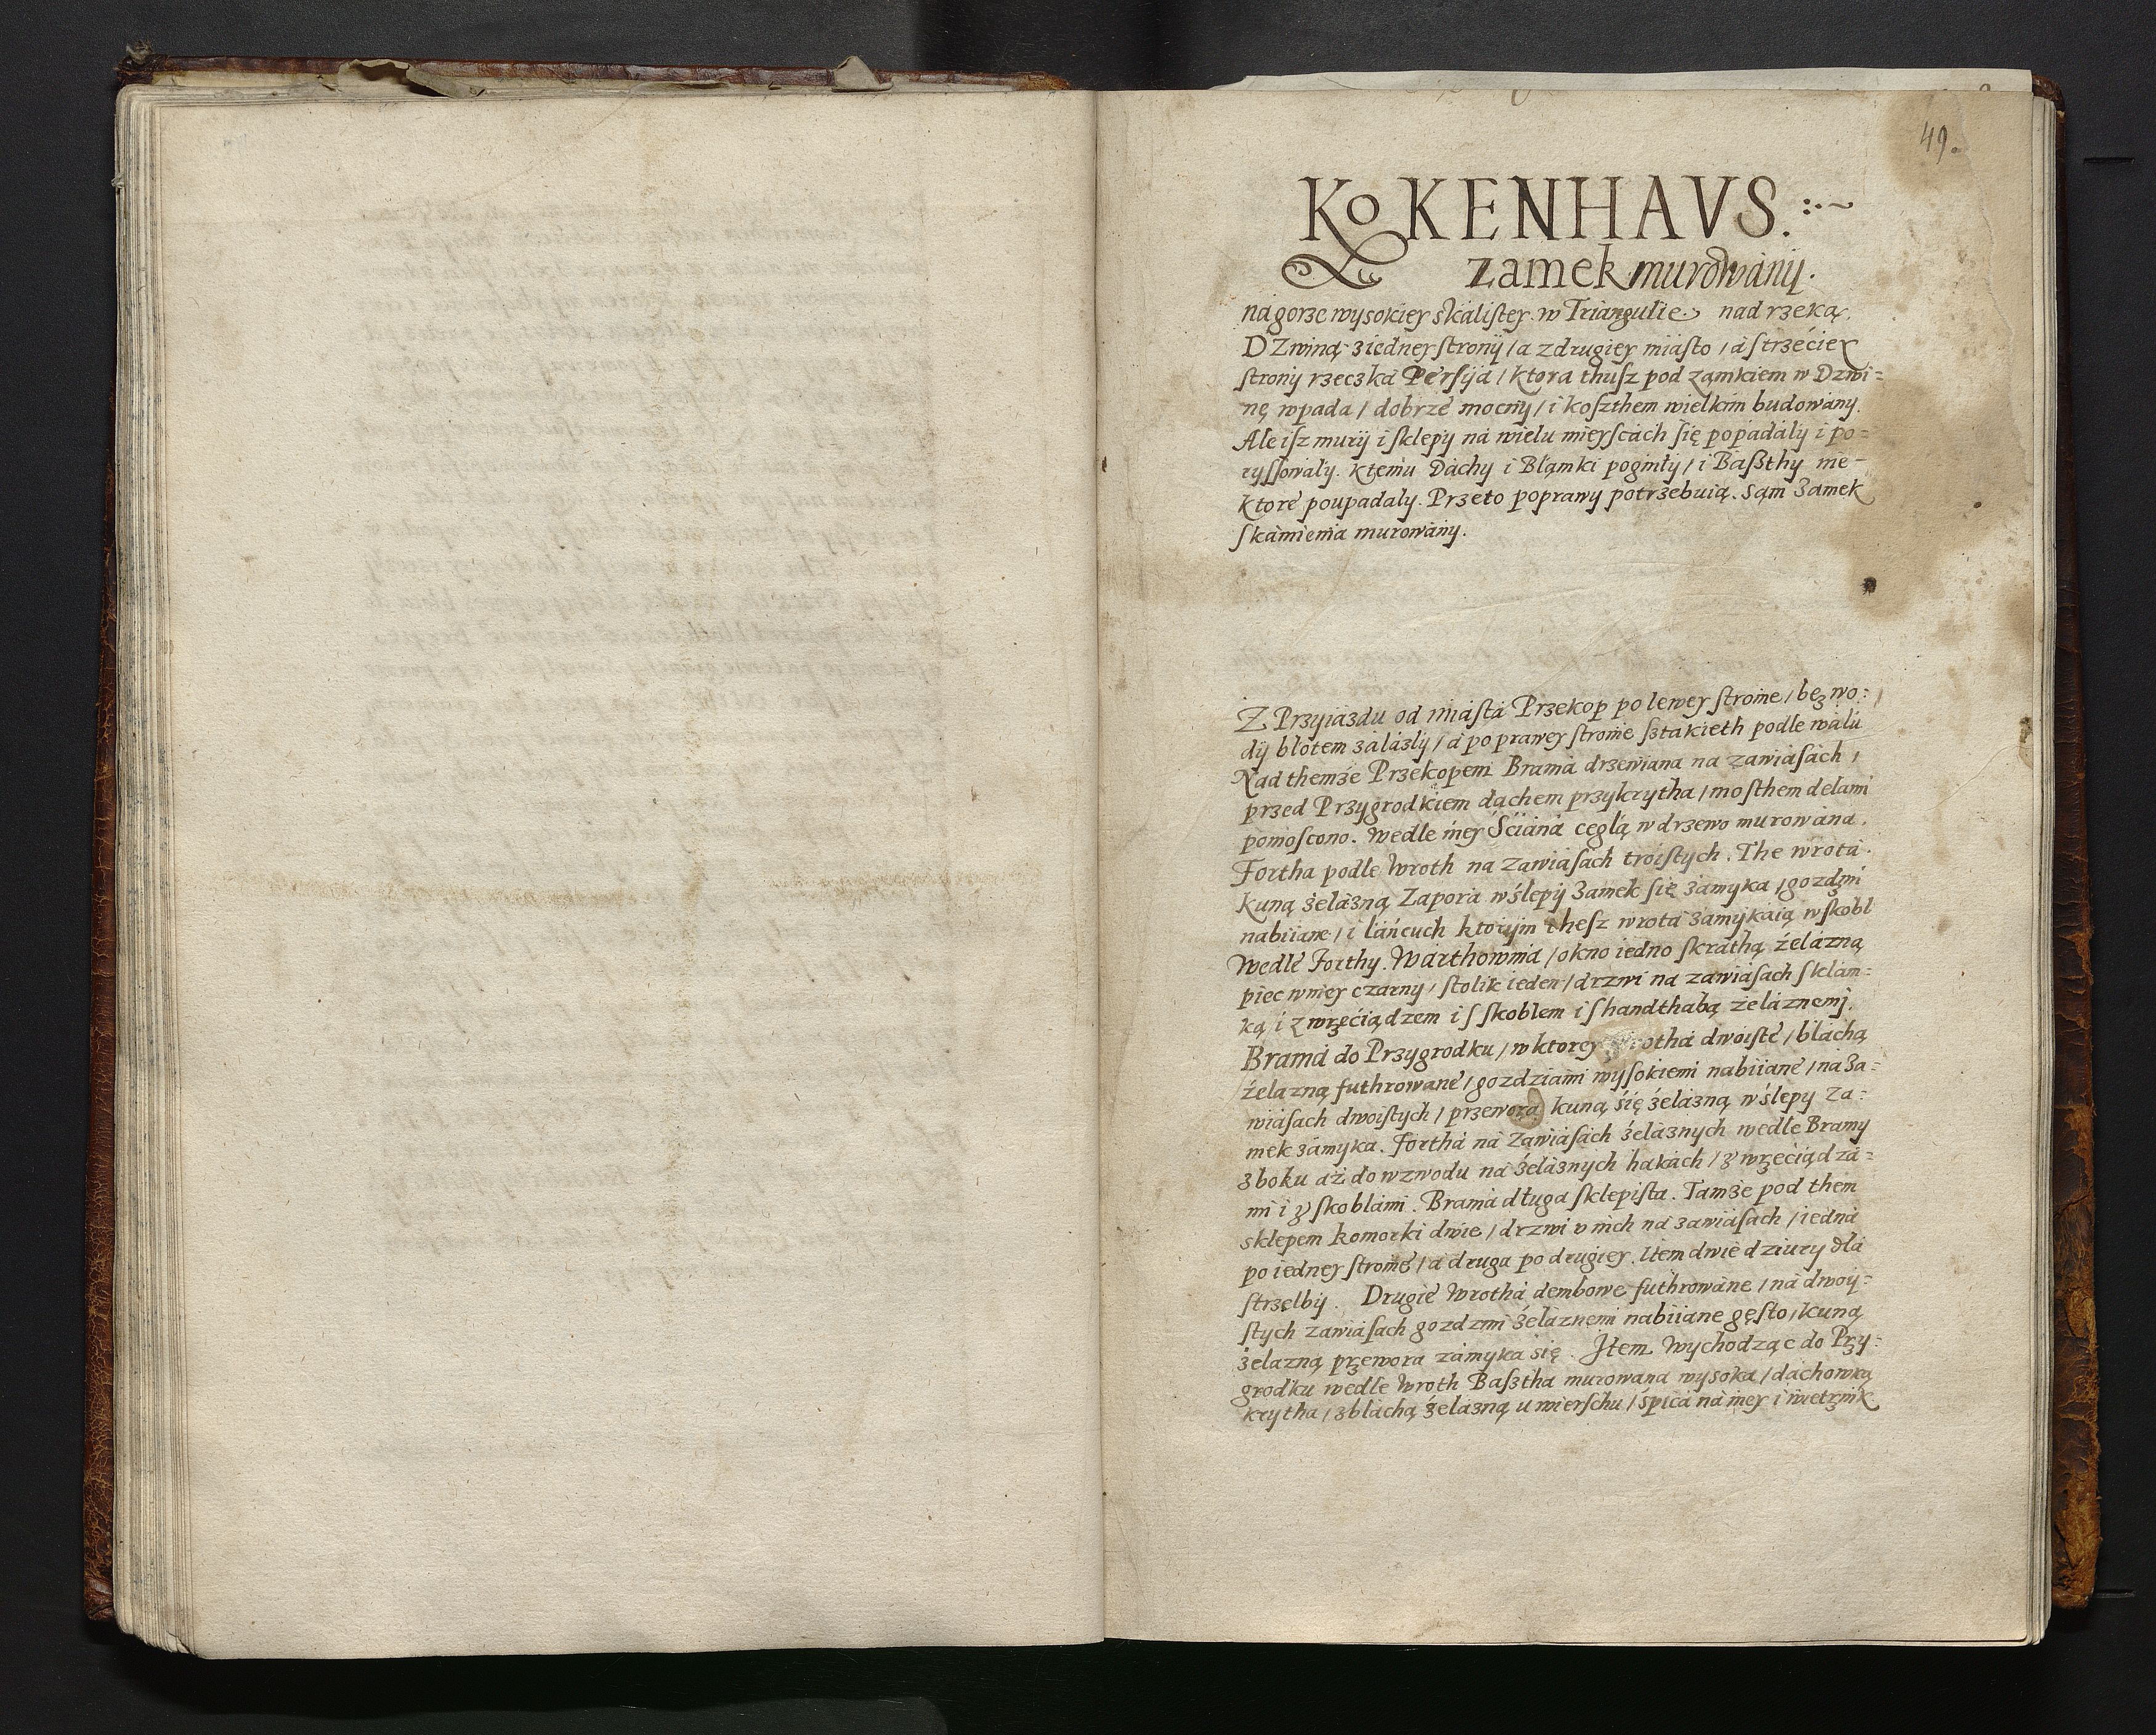 49.
KOKENHAVS.
zamek murowány.
ná gorze wysokiey skáliſtey. w Triangulie. nad rzeką
DZwiną z iedney ſtrony / a z drugiey miáſto / á ſ trzećiey
ſtrony rzeczká Perſyá / ktora thuſz pod zamkiem w Dzwi=
nę wpada / dobrze mocny / i koſzthem wielkim budowány.
Ale iſz mury i ſklepy ná wielu mieyſcách ſię popádáły i po=
ryſſowały. K temu Dáchy i Blámki poginęły / i Baßthy nie=
ktore poupadały. Przeto poprawy potrzebuią. Sąm Zamek
ſ kámienia murowány.
Z Przyiázdu od miáſtá Przekop po lewey ſtronie / bez wo:
dy błotem záláʒły / á po prawey ſtronie ſztakieth podle wáłu
Nad themże Przekopem Bramá drzewiana na zawiáſách /
przed Przygrodkiem dáchem przykrytha / moſthem delami
pomoſcono. Wedle niey Śćiáná cegłą w drzewo murowána.
Fortha podle Wroth na zawiáſach troiſtych. The wrotá
kuną żelázną Zaporá w ślepy Zamek ſię zámyka / gozdźmi
nabiiane / i łáńcuch ktorym theſz wrotá zámykáią w ſkobl
Wedle Forthy. Wárthownia / okno iedno ſ kráthą żelázną
piec w niey czarny / ſtolik ieden / drzwi na zawiáſach ſ klám=
ką i z wrzećiądzem i ſ ſkoblem i ſ handthabą żeláznemi.
Bramá do Przygrodku / w ktorey wrothá dwoiſte / bláchą
żelázną futhrowáne / gozdziámi wyſokiemi nabiiane / ná Za=
wiáſach dwoiſtych / przeworá kuną śię żelázną w ślepy Za=
mek zámyka. Forthá ná Zawiáſách żeláznych wedle Bramy
z boku áż do wzwodu ná żeláznych hakách / z wrzećiądzá=
mi i z ſkoblámi. Bramá długa ſklepiſta. Tamże pod them
sklepem komorki dwie / drzwi v nich ná zawiáſách / iedná
po iedney ſtronie / a druga po drugiey. Item dwie dziury dla
ſtrzelby. Drugie Wrothá dembowe futhrowáne / ná dwoy=
ſtych zawiáſach gozdzmi żeláznemi nabiiane gęſto / kuną
żelazną przewora zámyka się. Item Wychodząc do Przy=
grodku wedle wroth Baßtha murowana wysoka / dachowką
krytha / z bláchą żelázną u wierſchu / śpicá ná niey i wietrznik